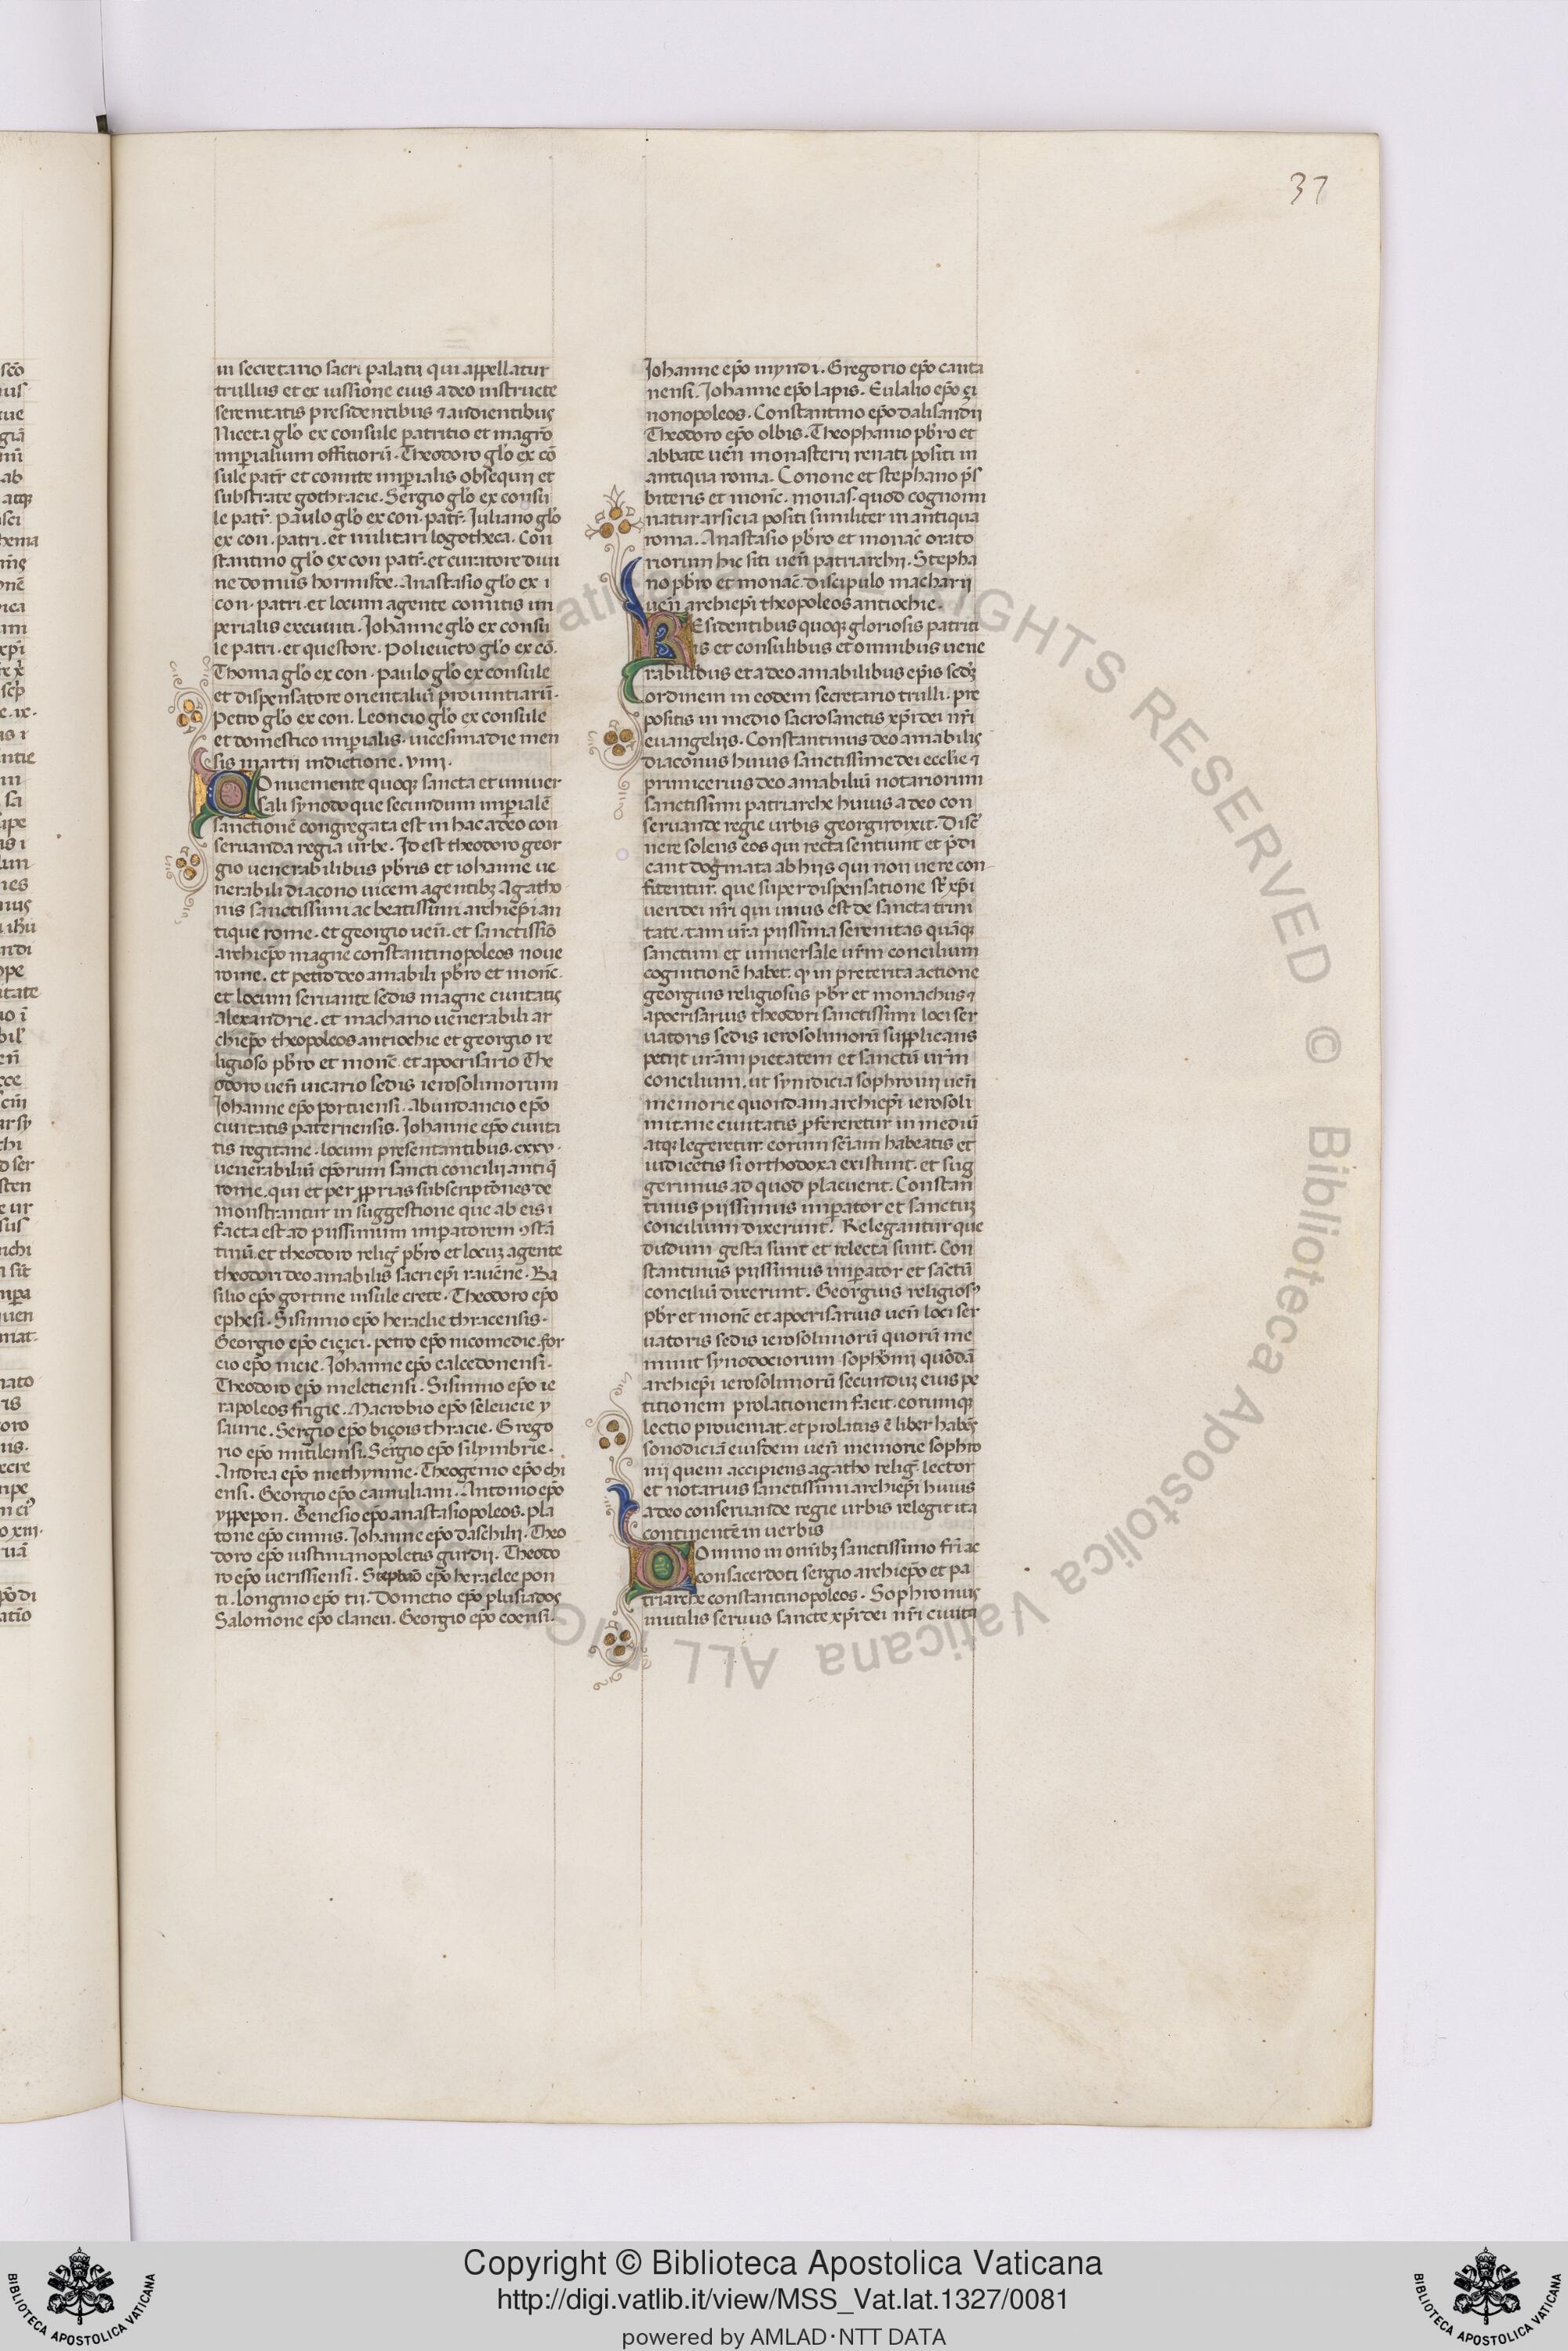 37
in secretario sacri palatii qui appellatur
trullus et ex iussione eius a deo instructe
serenitatis presidentibus ⁊ audientibus
Niceta glo᷑ ex consule patritio et magr̄o
imperialium offitiorū. Theodoro glo᷑ ex cō
sule patr̄ et comite imperialis obsequii et
substrate gothracie. Sergio glo᷑ ex consu
le patr̄. Paulo glo᷑ ex con. patr̄. Iuliano glo᷑
ex con. patri. et militari logotheca. Con
stantino glo᷑ ex con patr̄. et curatore diui
ne domus hormisde. Anastasio glo᷑ ex i
con. patri. et locum agente comitis im
perialis excuuiti. Iohanne glo᷑ ex consu
le patri. et questore. Polieucto glo᷑ ex cō.
Thoma glo᷑ ex con. paulo glo᷑ ex consule
et dispensatore orientaliū prouintiarū.
Petro glo᷑ ex con. Leoncio glo᷑ ex consule
et domestico imperialis. uicesima die men
sis martii indictione. viiii.
Conuemente quoq; sancta et uniuer
sali synodo que secundum imperialē
sanctionē congregata est in hac a deo con
seruanda regia urbe. Id est theodoro geor
gio uenerabilibus pb̄ris et iohanne ue
nerabili diacono uicem agentibz Agatho
nis sanctissimi ac beatissimi archiep̄i an
tique rome. et georgio ueñ. et sanctissīo
archiep̄o magne constantinopoleos noue
rome. et petro deo amabili pb̄ro et monc̄.
et locum seruante sedis magne ciuitatis
alexandrie. et machario uenerabili ar
chiep̄o theopoleos antiochie et georgio re
ligioso pb̄ro et monc̄ et apocrisario The
odoro ueñ uicario sedis ierosolimorum
Iohanne ep̄o portuensi. Abundancio ep̄o
ciuitatis paternensis. Iohanne ep̄o ciuita
tis regitane. locum presentantibus. cxxv.
uenerabiliū ep̄orum sancti concilii antiq̄
rome. qui et per pprias subscriptōnes de
monstrantur in suggestione que ab eis i
facta est ad piissimum imperatorem ꝯstā
tinū. et theodoro reliḡ pb̄ro et locuz agente
theodori deo amabilis sacri ep̄i rauēne. Ba
silio ep̄o gortine insule crete. Theodoro ep̄o
ephesi. Sisinnio ep̄o heraclie thracensis.
Georgio ep̄o cicici. petro ep̄o nicomedie. for
cio ep̄o nicie. Iohanne ep̄o calcedonensi.
Theodoro ep̄o meletiensi. Sisinnio ep̄o ie
rapoleos frigie. Macrobio ep̄o seleucie y
saurie. Sergio ep̄o biçois thracie. Grego
rio ep̄o mitilensi. Sergio ep̄o silymbrie.
Andrea ep̄o methymne. Theogenio ep̄o chi
ensi. Georgio ep̄o camuliani. Antonio ep̄o
yppepon. Genesio ep̄o anastasiopoleos. pla
tone ep̄o cinnis. Iohanne ep̄o daschilii. Theo
doro ep̄o iustinianopoletis gurdii. Theodo
ro ep̄o uerissiensi. Stephāo ep̄o heraclee pon
ti. longino ep̄o tii. Dometio ep̄o plusiados
Salomone ep̄o claneu. Georgio ep̄o coensi.
Iohanne ep̄o myndi. Gregorio ep̄o canta
nensi. Iohanne ep̄o lapis. Eulalio ep̄o çi
nonopoleos. Constantino ep̄o dalisandii
Theodoro ep̄o olbis. Theophanio pb̄ro et
abbate ueñ monasterii renati positi in
antiqua roma. Conone et stephano p̄s
biteris et monc̄. monas. quod cognomi
natur arsicia positi similiter in antiqua
roma. Anastasio pb̄ro et monac̄ orato
riorum hic siti ueñ patriarchii. Stepha
no pb̄ro et monac̄ discipulo macharii
ueñ archiep̄i theopoleos antiochie.
REsidentibus quoq; gloriosis patriti
is et consulibus et omnibus uene
rabilibus et a deo amabilibus ep̄is sedz
ordinem in eodem secretario trulli. pre
positis in medio sacrosanctis xp̄i dei nr̄i
euangeliis. Constantinus deo amabilis
diaconus huius sanctissime dei ecclie ⁊
primicerius deo amabiliū notariorum
sanctissimi patriarche huius a deo con
seruande regie urbis georgii dixit. Disc̄
nere solens eos qui recta sentiunt et p̄di
cant dogmata ab hiis qui non uere con
fitentur. que super dispensatione st̄ xp̄i
ueri dei nr̄i qui unus est de sancta trini
tate. tam ur̄a piissima serenitas quāq;
sanctum et uniuersale ur̄m concilium
cognitionē habet. q̄ in preterita actione
georgius religiosus pb̄r et monachus ⁊
apocrisarius theodori sanctissimi loci ser
uatoris sedis ierosolimorū supplicans
petiit uram pietatem et sanctū ur̄m
concilium. ut syndicia sophronii ueñ
memorie quondam archiep̄i ierosoli
mitane ciuitatis p̄fereretur in mediū
atq; legeretur. eorum sc̄iam habeatis et
iudicetis si orthodoxa existunt. et sug
gerimus ad quod placuerit. Constan
tinus piissimus imperator et sanctuz
concilium dixerunt. Relegantur que
dudum gesta sunt et relecta sunt. Con
stantinus piissimus imperator et sāctū
conciliū dixerunt. Georgius religios⁹
pb̄r et monc̄ et apocrisarius ueñ loci ser
uatoris sedis ierosolimorū quorū me
minit synodociorum sophōnii quōdā
archiep̄i ierosolimorū secunduz eius pe
titionem prolationem facit. eorumq;
lectio proueniat. et prolatus ē liber habēs
sonodiciā eiusdem ueñ memorie sophro
nii quem accipiens agatho reliḡ. lector
et notarius sanctissimi archiep̄i huius
a deo conseruande regie urbis relegit ita
continentē in uerbis
DOmino in om̄ibz sanctissimo fr̄i ac
consacerdoti sergio archiep̄o et pa
triarche constantinopoleos. Sophronius
inutilis seruus sancte xp̄i dei nr̄i ciuita
Copyright © Biblioteca Apostolica Vaticana
http://digi.vatlib.it/view/MSS_Vat.lat.1327/0081
powered by AMLAD·NTT DATA